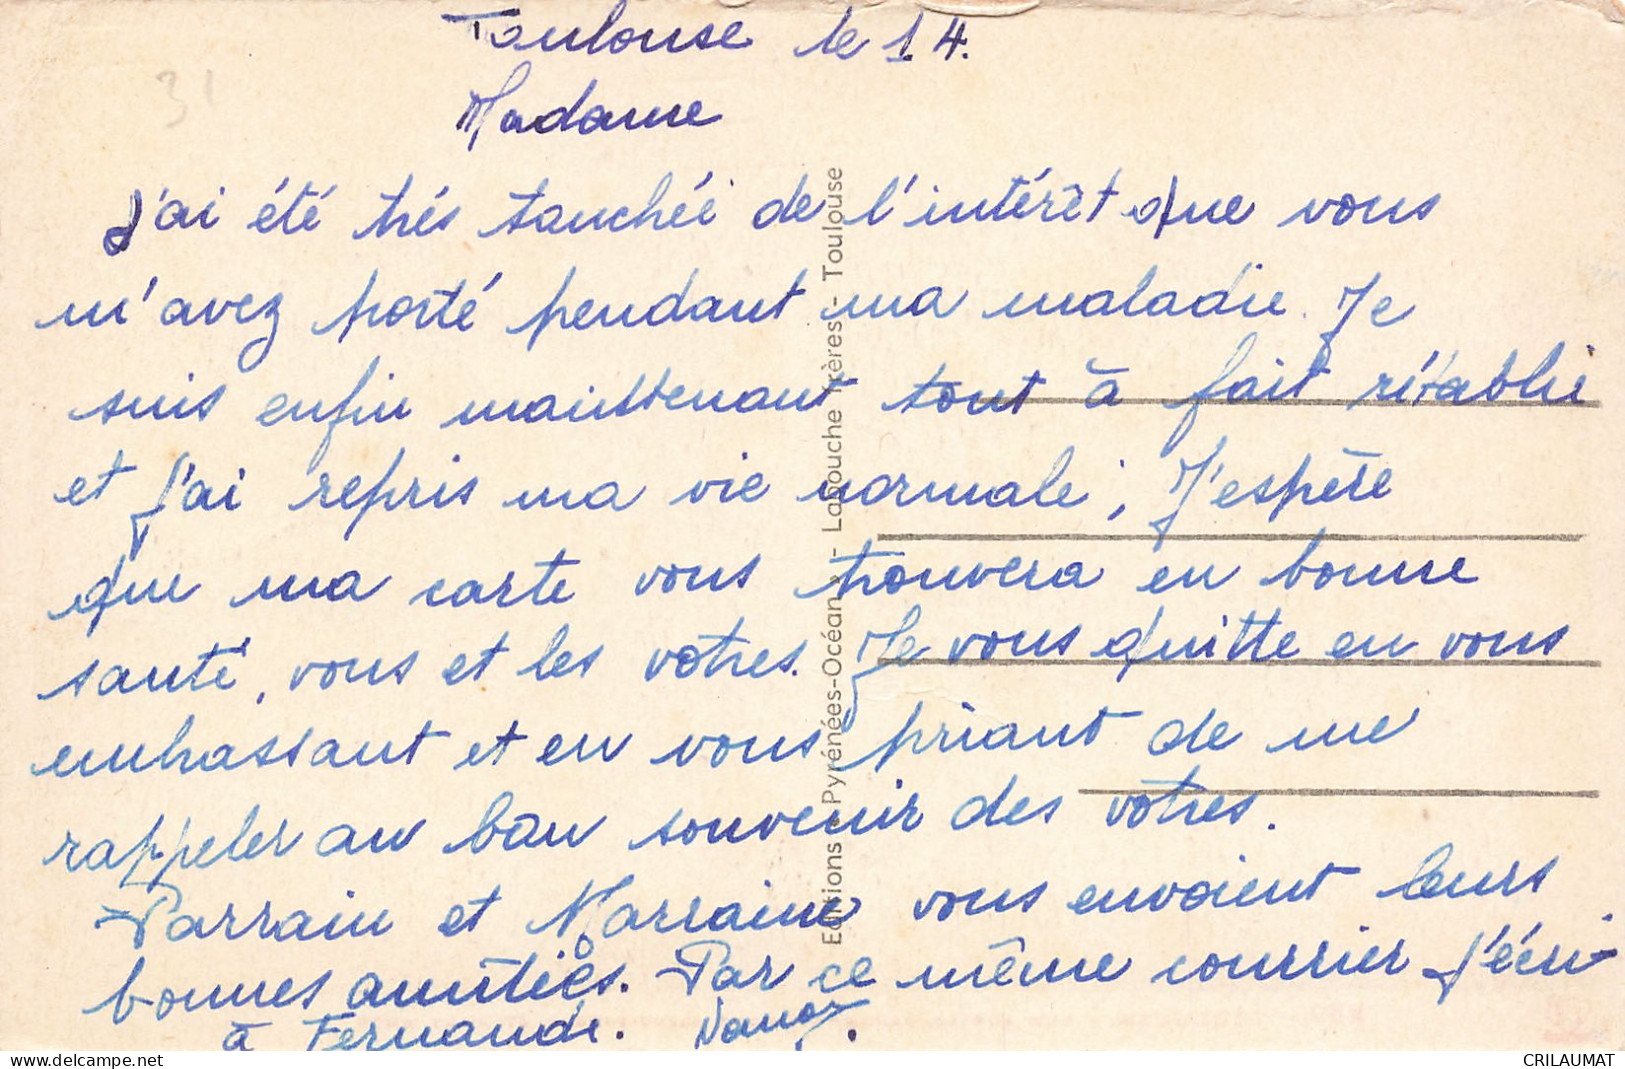 Toulouse le 1.4.
31
Madame
J'ai été très touchée de l'intérêt que vous
m'avez porté pendant ma maladie. Je
suis enfin maintenant tout à fait rétablie
et j'ai repris ma vie normale ; J'espère
que ma carte vous trouvera en bonne
santé, vous et les vôtres. Je vous quitte en vous
embrassant et en vous priant de me
rappeler au bon souvenir des vôtres.
Parrain et Marraine vous envoient leurs
bonnes amitiés. Par ce même courrier j'écri
à Fernande.
Editions Pyrénées-Océan - Labouche Frères - Toulouse
CRILAUMAT